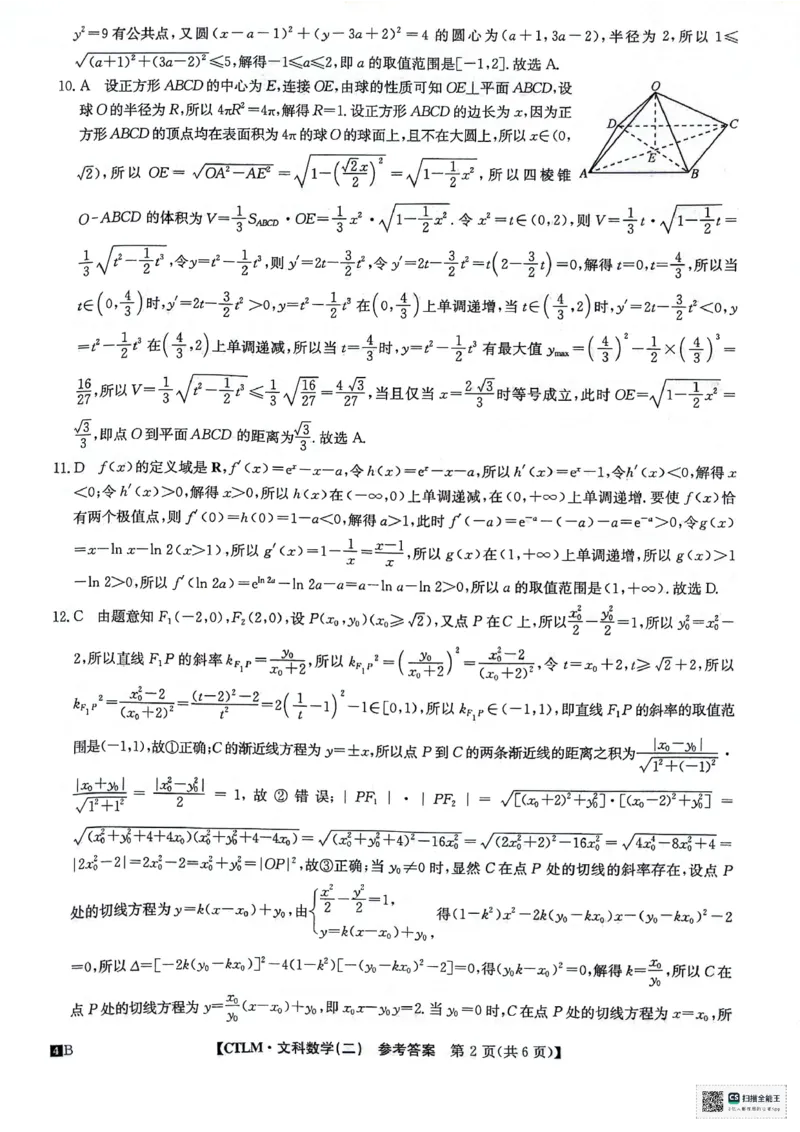 y²=9有公共点,又圆(x-a-1)²+(y-3a+2)²=4 的圆心为(a+1,3a-2),半径为 2,所以 1≤
√((a+1)²+(3a-2)²)≤5,解得-1≤a≤2,即 a 的取值范围是[-1,2].故选 A.
10. A 设正方形 ABCD 的中心为 E,连接 OE,由球的性质可知 OE⊥平面 ABCD,设
球 O 的半径为 R,所以 4πR²=4π,解得 R=1.设正方形 ABCD 的边长为 x,因为正
方形 ABCD 的顶点均在表面积为 4π 的球 O 的球面上,且不在大圆上,所以 x∈(0,
√2),所以 OE=√(OA²-AE²)=√(1-(√2x/2)²)=√(1-1/2x²),所以四棱锥
O
D
C
E
A
B
O-ABCD 的体积为 V=1/3S_ABCD·OE=1/3x²·√(1-1/2x²).令 x²=t∈(0,2),则 V=1/3t·√(1-1/2t)=
1/3√(t²-1/2t³),令y=t²-1/2t³,则 y′=2t-3/2t²,令 y′=2t-3/2t²=t(2-3/2t)=0,解得 t=0,t=4/3,所以当
t∈(0,4/3)时,y′=2t-3/2t²>0,y=t²-1/2t³ 在(0,4/3)上单调递增,当 t∈(4/3,2)时,y′=2t-3/2t²<0,y
=t²-1/2t³ 在(4/3,2)上单调递减,所以当 t=4/3时,y=t²-1/2t³ 有最大值 y_max=(4/3)²-1/2×(4/3)³=
16/27,所以 V=1/3√(t²-1/2t³)≤1/3√(16/27)=4√3/27,当且仅当 x=2√3/3时等号成立,此时 OE=√(1-1/2x²)=
√3/3,即点 O 到平面 ABCD 的距离为√3/3.故选 A.
11. D f(x)的定义域是 R,f′(x)=eˣ-x-a,令 h(x)=eˣ-x-a,所以 h′(x)=eˣ-1,令h′(x)<0,解得 x
<0;令 h′(x)>0,解得 x>0,所以 h(x)在(-∞,0)上单调递减,在(0,+∞)上单调递增.要使 f(x)恰
有两个极值点,则 f′(0)=h(0)=1-a<0,解得 a>1,此时 f′(-a)=e⁻ᵃ-(-a)-a=e⁻ᵃ>0,令g(x)
=x-ln x-ln 2(x>1),所以 g′(x)=1-1/x=(x-1)/x,所以 g(x)在(1,+∞)上单调递增,所以 g(x)>1
-ln 2>0,所以 f′(ln 2a)=e^(ln 2a)-ln 2a-a=a-ln a-ln 2>0,所以 a 的取值范围是(1,+∞).故选 D.
12. C 由题意知 F₁(-2,0),F₂(2,0),设 P(x₀,y₀)(x₀≥√2),又点 P 在 C 上,所以x₀²/2-y₀²/2=1,所以 y₀²=x₀²-
2,所以直线 F₁P 的斜率 k_F₁P=y₀/(x₀+2),所以 k_F₁P²=(y₀/(x₀+2))²=(x₀²-2)/(x₀+2)²,令 t=x₀+2,t≥√2+2,所以
k_F₁P²=(x₀²-2)/(x₀+2)²=((t-2)²-2)/t²=2(1/t-1)²-1∈[0,1),所以 k_F₁P∈(-1,1),即直线 F₁P 的斜率的取值范
围是(-1,1),故①正确;C 的渐近线方程为 y=±x,所以点 P 到 C 的两条渐近线的距离之积为|x₀-y₀|/√(1²+(-1)²)·
|x₀+y₀|/√(1²+1²)=|x₀²-y₀²|/2=1,故②错误;|PF₁|·|PF₂|=√([(x₀+2)²+y₀²]·[(x₀-2)²+y₀²])=
√((x₀²+y₀²+4+4x₀)(x₀²+y₀²+4-4x₀))=√((x₀²+y₀²+4)²-16x₀²)=√((2x₀²+2)²-16x₀²)=√(4x₀⁴-8x₀²+4)=
|2x₀²-2|=2x₀²-2=x₀²+y₀²=|OP|²,故③正确;当 y₀≠0 时,显然 C 在点 P 处的切线的斜率存在,设点 P
处的切线方程为 y=k(x-x₀)+y₀,由{x²/2-y²/2=1, y=k(x-x₀)+y₀, 得(1-k²)x²-2k(y₀-kx₀)x-(y₀-kx₀)²-2
=0,所以 Δ=[-2k(y₀-kx₀)]²-4(1-k²)[-(y₀-kx₀)²-2]=0,得(y₀k-x₀)²=0,解得 k=x₀/y₀,所以 C 在
点 P 处的切线方程为 y=x₀/y₀(x-x₀)+y₀,即 x₀x-y₀y=2.当 y₀=0 时,C 在点 P 处的切线方程为 x=x₀,所
4 B
【CTLM·文科数学(二) 参考答案 第 2 页(共 6 页)】
CS 扫描全能王